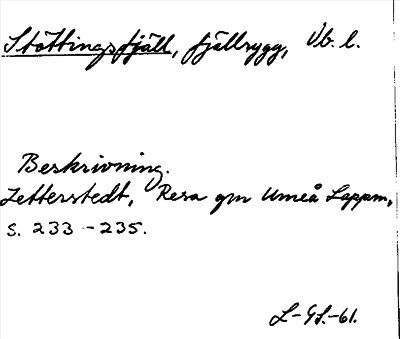 Stöttingsfjäll, fjällrygg, Vb. l.
Beskrivning.
Zetterstedt, Resa gm Umeå Lappm,
s. 233 - 235.
L-GS.-61.